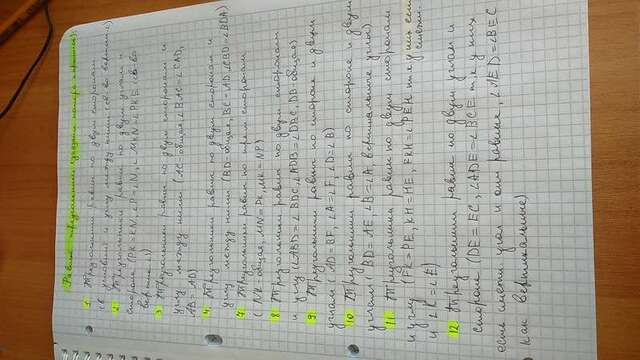 Равные треугольники (указаны номера чертежей).
1. Треугольники равны по двум сторонам
(в условии) и углу между ними (св-во вертик.∠)
2. Треугольники равны по двум углам и
стороне (PK=KN, ∠P=∠N, ∠MKN=∠PKE (св-во
вертик.∠)
3. Треугольники равны по двум сторонам и
углу между ними (AC-общая, ∠BAC=∠CAD,
AB=AD)
4. Треугольники равны по двум сторонам и
углу между ними (BD-общая, BC=AD, ∠CBD=∠BDA)
7. Треугольники равны по трём сторонам
(NK-общая, MN=PK, MK=NP)
8 Треугольники равны по двум сторонам
и углу (∠ABD=∠BDC, ∠ADB=∠DBC, DB-общая)
9 Треугольники равны по стороне и двум
углам (AD=BF, ∠A=∠F, ∠D=∠B)
10 Треугольники равны по стороне и двум
углам (BD=AE, ∠B=∠A, вертикальные углы)
11 Треугольники равны по двум сторонам
и углу (FK=PE, KH=HE, FKH=∠PEH т.к у них есть
смежн.
и ∠K=∠E)
12 Треугольники равны по двум углам и
стороне (DE=EC, ∠ADE=∠BCE т.к у них
есть смежн. угол и они равные, ∠AED=∠BEC
как вертикальные)